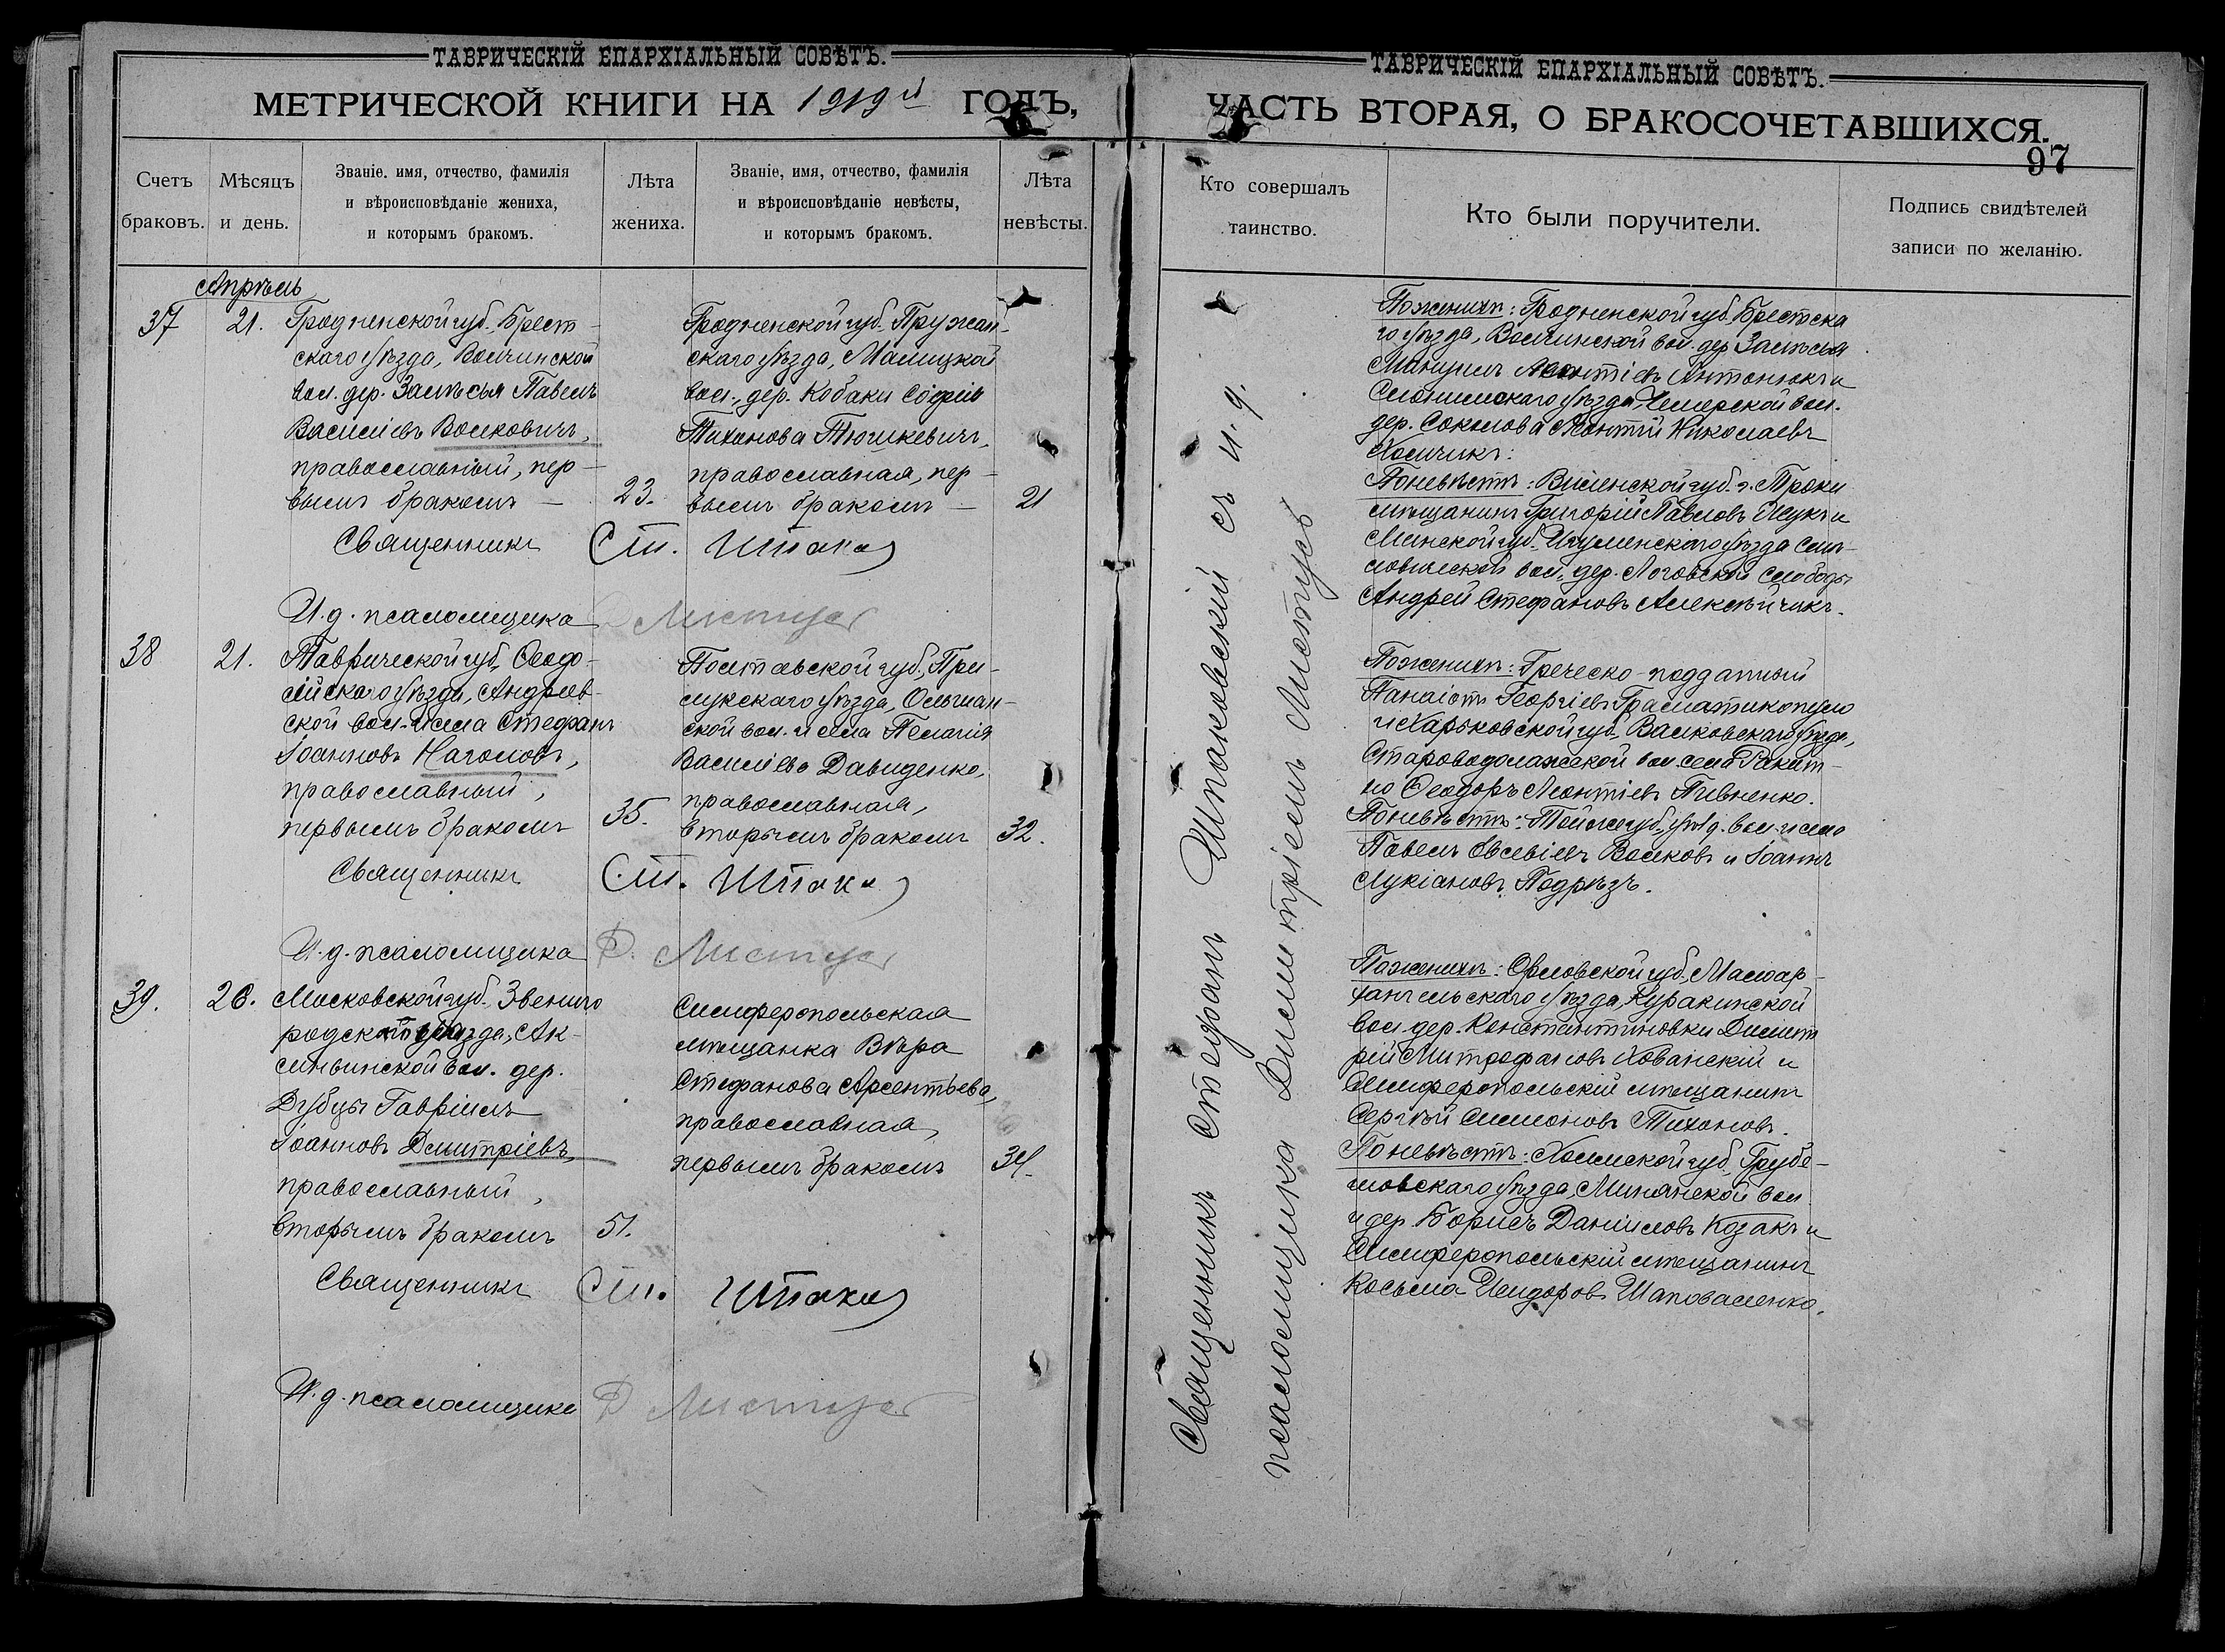 ТАВРИЧЕСКІЙ ЕПАРХІАЛЬНЫЙ СОВѢТЪ.
МЕТРИЧЕСКОЙ КНИГИ НА 1919й ГОДЪ,
Счетъ браковъ.
Мѣсяцъ и день.
Званіе, имя, отчество, фамилія
и вѣроисповѣданіе жениха,
и которымъ бракомъ.
Лѣта жениха.
Званіе, имя, отчество, фамилія
и вѣроисповѣданіе невѣсты,
и которымъ бракомъ.
Лѣта невѣсты.
Апрѣль
37
21.
Гродненской губ. Брест-
скаго уѣзда, Волчинской
вол. дер. Залѣсья Павелъ
Василіевъ Волковичъ,
православный, пер-
вымъ бракомъ —
23.
Гродненской губ. Пружан-
скаго уѣзда, Малицкой
вол., дер. Кобаки Софія
Тихонова Тюшкевичъ,
православная, пер-
вымъ бракомъ —
21
Священникъ Ст. Шпако
И. д. псаломщика Д Мистус
38
21.
Таврической губ., Ѳеодо-
сійскаго уѣзда, Андреев-
ской вол. и села Стефанъ
Іоанновъ Нагомовъ,
православный,
первымъ бракомъ
35.
Полтавской губ., При-
лукскаго уѣзда, Ольшан-
ской вол. и села Пелагія
Василіева Давиденко,
православная,
вторымъ бракомъ
32.
Священникъ Ст. Шпако
И. д. псаломщика Д. Мистус
39.
26.
Московской губ. Звениго
родского уѣзда, Ак-
синьинской вол. дер.
Дубцы Гавріилъ
Іоанновъ Дмитріевъ,
православный,
вторымъ бракомъ
51.
Симферопольская
мѣщанка Вѣра
Стефанова Арсентьева,
православная,
первымъ бракомъ
34.
Священникъ Ст. Шпако
И. д. псаломщика Д Мистус
ТАВРИЧЕСКІЙ ЕПАРХІАЛЬНЫЙ СОВѢТЪ.
ЧАСТЬ ВТОРАЯ, О БРАКОСОЧЕТАВШИХСЯ.
97
Кто совершалъ таинство.
Кто были поручители.
Подпись свидѣтелей
записи по желанію.
Священникъ Стефанъ Шпаковскій съ и. д.
псаломщика Димитріемъ Мистусъ
По женихѣ: Гродненской губ. Брестска
го уѣзда, Волчинской вол. дер. Залѣсья
Мануилъ Леонтіевъ Антонюкъ и
Слонимскаго уѣзда, Чемерской вол.
дер. Соколова Леонтій Николаевъ
Хомчикъ:
По невѣстѣ: Виленской губ. г. Троки
мѣщанинъ Григорій Павловъ Цеукъ и
Минской губ. Игуменскаго уѣзда Сми-
ловичской вол., дер. Логовской Слободы
Андрей Стефановъ Алексѣйчикъ.
По женихѣ: Греческо-подданный
Панаіотъ Георгіевъ Граматикопуло
и Харьковской губ., Валковскаго уѣзда,
Староводолажской вол. села Ракит-
но Ѳеодоръ Леонтіевъ Пивненко.
По невѣстѣ: Той же губ., уѣзд. вол. и села
Павелъ Евсевіевъ Волковъ и Іоаннъ
Лукіановъ Подрѣзъ.
По женихѣ: Орловской губ., Малоар-
хангельскаго уѣзда, Куракинской
вол. дер. Константиновки Димит
рій Митрофановъ Хованскій и
Симферопольскій мѣщанинъ
Сергѣй Симоновъ Тихоновъ.
По невѣстѣ: Холмской губ., Грубе-
шовскаго уѣзда, Минянской вол.
и дер. Борисъ Даніиловъ Козакъ и
Симферопольскій мѣщанинъ
Косьма Исидоровъ Шаповаленко.